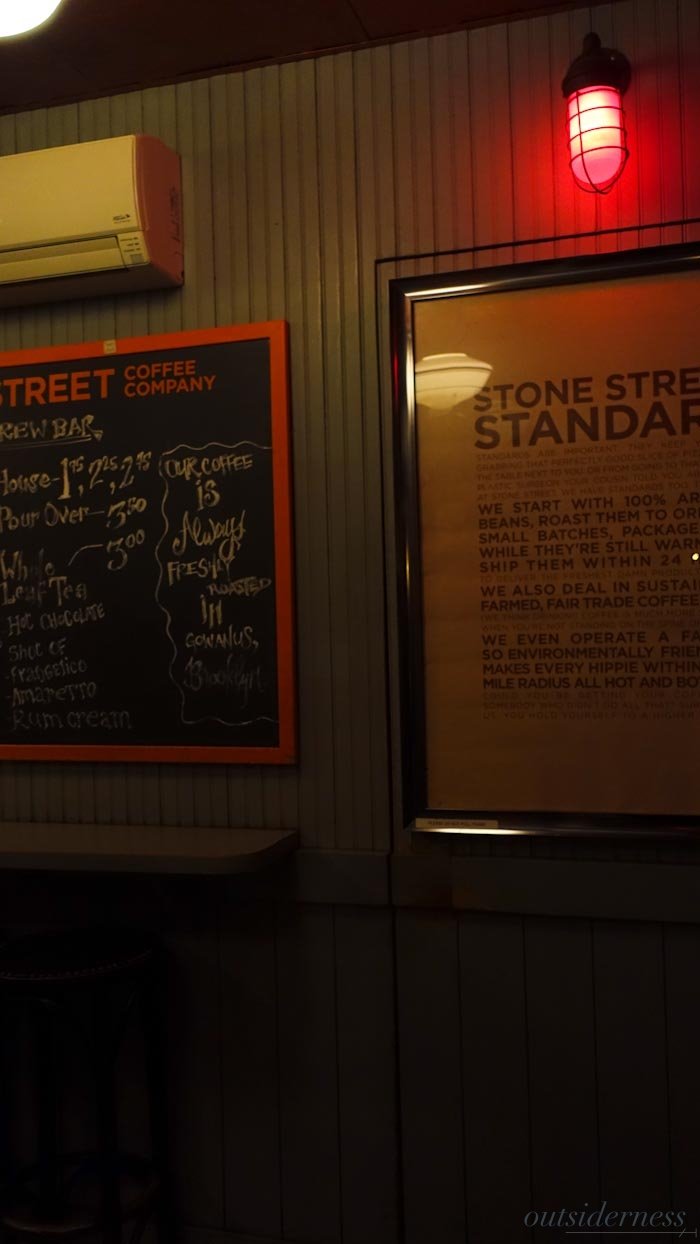 STREET COFFEE
COMPANY
REW BAR
House - 1.75, 2.25, 2.75
Pour Over - 3.50
Whole - 3.00
Leaf Tea
HOT CHOCOLATE
SHOT OF
- Frangelico
- Amaretto
- Rum cream
OUR COFFEE
is
Always
FRESHLY
ROASTED
in
GOWANUS,
Brooklyn
STONE STRE
STANDAR
STANDARDS ARE IMPORTANT. THEY KEEP
GRABBING THAT PERFECTLY GOOD SLICE OF PIZ
THE TABLE NEXT TO YOU OR FROM GOING TO THE
PLASTIC SURGEON YOUR COUSIN TOLD YOU
AT STONE STREET, WE HAVE STANDARDS TOO
WE START WITH 100% AR
BEANS, ROAST THEM TO OR
SMALL BATCHES, PACKAGE
WHILE THEY'RE STILL WARM
SHIP THEM WITHIN 24
TO DELIVER THE FRESHEST DAMN PRODUC
WE ALSO DEAL IN SUSTAI
FARMED, FAIR TRADE COFFEE
WE EVEN OPERATE A FA
SO ENVIRONMENTALLY FRIEN
MAKES EVERY HIPPIE WITHIN
MILE RADIUS ALL HOT AND BO
COULD YOU BE GETTING YOUR COF
SOMEBODY WHO DIDN'T DO ALL THAT? SUR
US, YOU HOLD YOURSELF TO A HIGHER
outsiderness